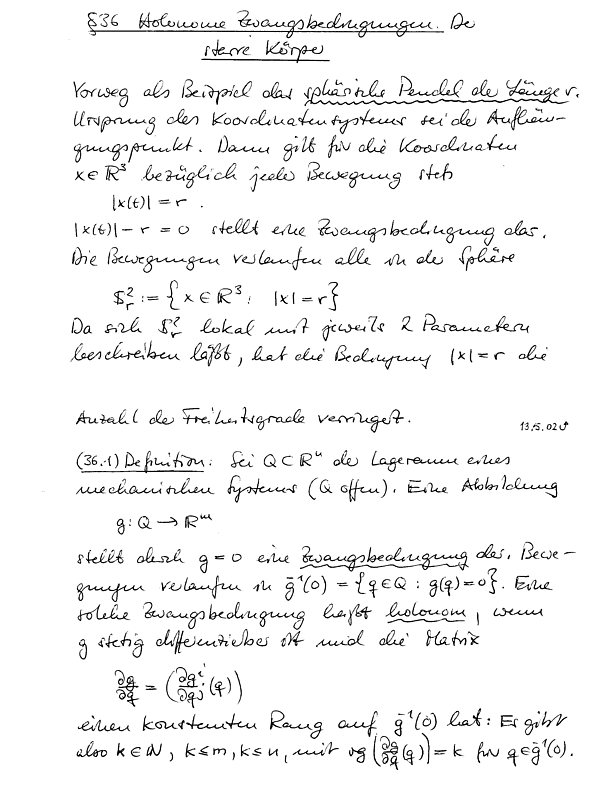 §36 Holonome Zwangsbedingungen. Der
starre Körper
Vorweg als Beispiel das sphärische Pendel der Länge r.
Ursprung des Koordinatensystems sei der Aufhän-
gungspunkt. Dann gilt für die Koordinaten
x ∈ ℝ³ bezüglich jeder Bewegung stets
|x(t)| = r .
|x(t)| - r = 0 stellt eine Zwangsbedingung dar.
Die Bewegungen verlaufen alle in der Sphäre
𝕊²ᵣ := { x ∈ ℝ³ : |x| = r }
Da sich 𝕊²ᵣ lokal mit jeweils 2 Parametern
beschreiben läßt, hat die Bedingung |x| = r die
Anzahl der Freiheitsgrade verringert.
13.5.02
(36.1) Definition: Sei Q ⊂ ℝⁿ der Lageraum eines
mechanischen Systems (Q offen). Eine Abbildung
g : Q → ℝᵐ
stellt durch g = 0 eine Zwangsbedingung dar. Bewe-
gungen verlaufen in g⁻¹(0) = {q ∈ Q : g(q) = 0}. Eine
solche Zwangsbedingung heißt holonom, wenn
g stetig differenzierbar ist und die Matrix
∂g/∂q = (∂gⁱ/∂qʲ (q))
einen konstanten Rang auf g⁻¹(0) hat: Es gibt
also k ∈ ℕ, k ≤ m, k ≤ n, mit rg(∂g/∂q (q)) = k für q ∈ g⁻¹(0).